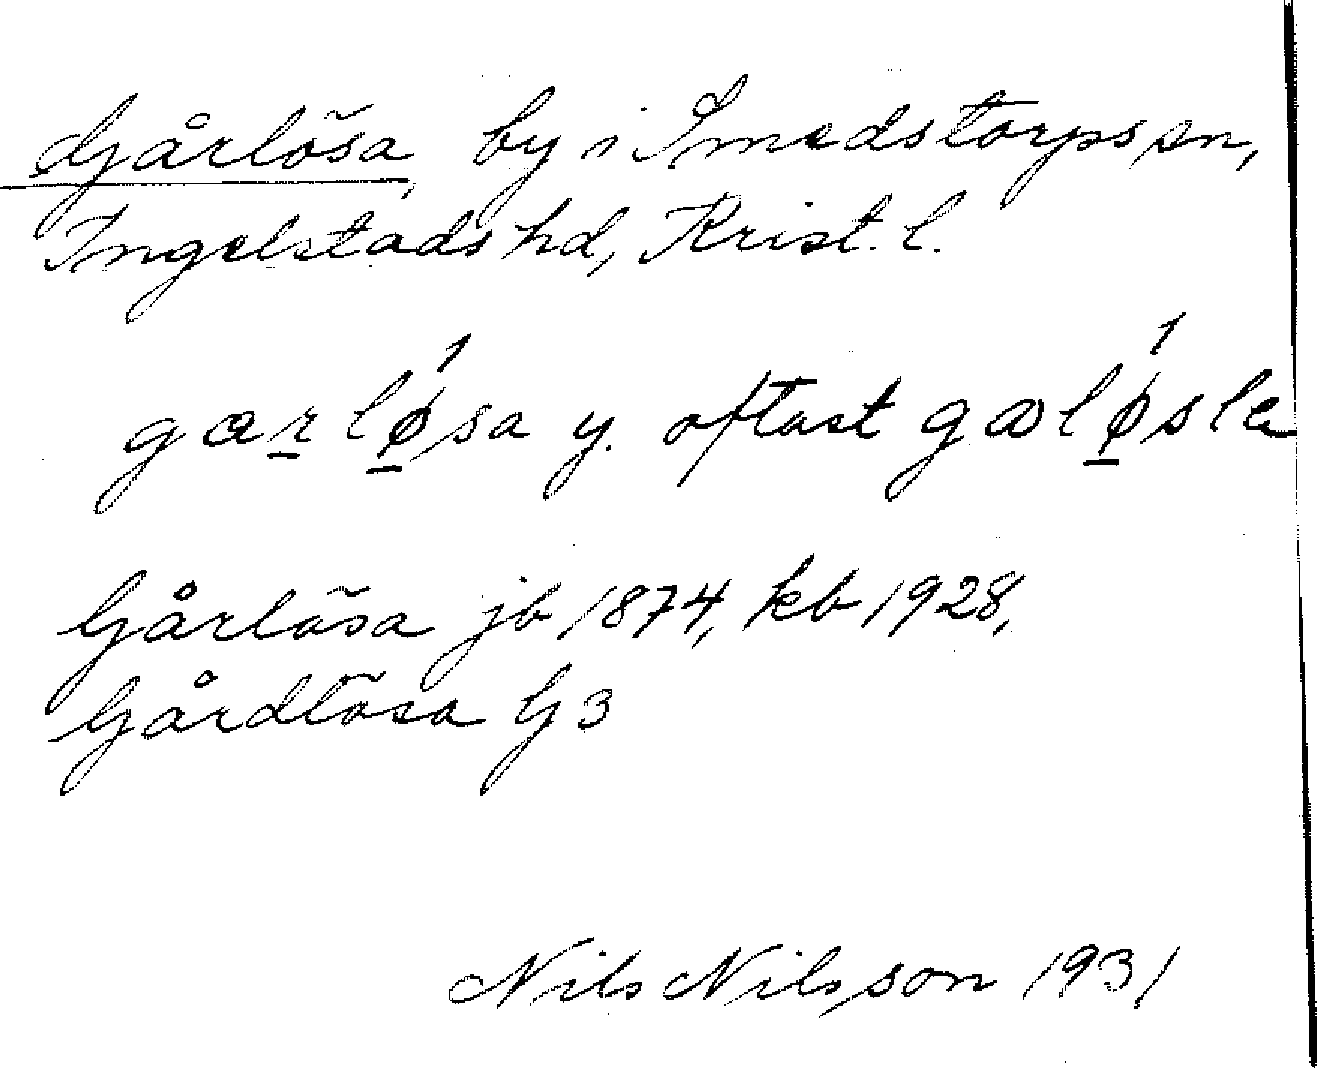 Gårlösa, by i Smedstorps sn,
Ingelstads hd, Krist. l.
gærlø̱´sa y. oftast gælø̱´sle
Gårlösa jb 1874, kb 1928,
Gårdlösa G 3
Nils Nilsson 1931